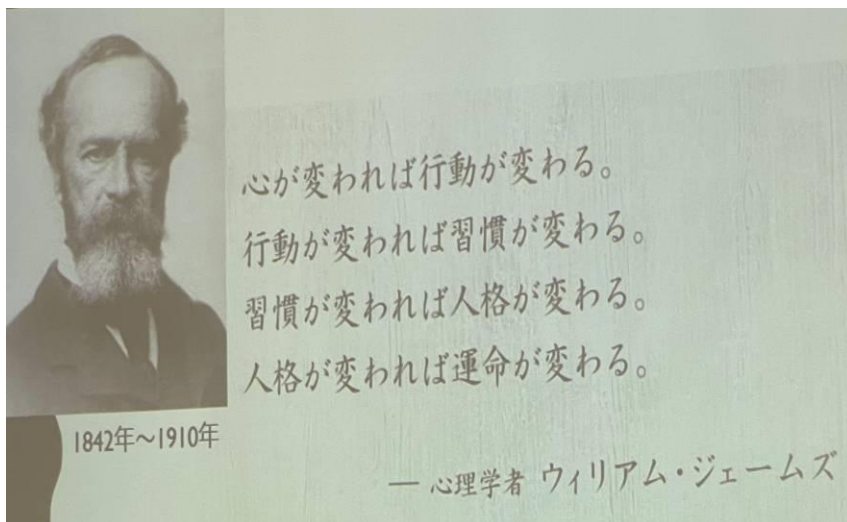 心が変われば行動が変わる。
行動が変われば習慣が変わる。
習慣が変われば人格が変わる。
人格が変われば運命が変わる。
1842年〜1910年
— 心理学者 ウィリアム・ジェームズ